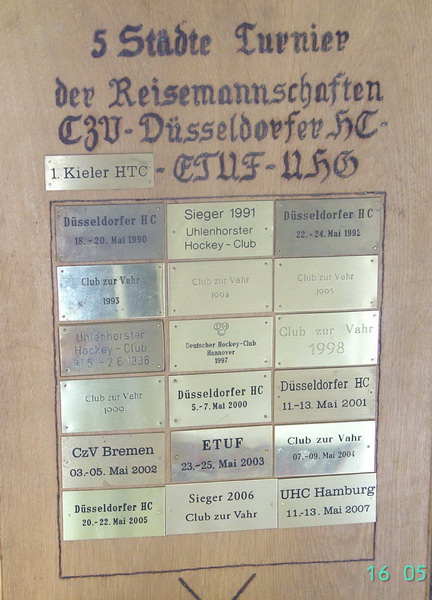 5 Städte Turnier
der Reisemannschaften
CZV-Düsseldorfer HC-
1. Kieler HTC - ETUF-UHG
Düsseldorfer HC
18.-20. Mai 1990
Sieger 1991
Uhlenhorster
Hockey-Club
Düsseldorfer HC
22.-24. Mai 1992
Club zur Vahr
1993
Club zur Vahr
1994
Club zur Vahr
1995
Uhlenhorster
Hockey-Club
31.5.-2.6.1996
Deutscher Hockey-Club
Hannover
1997
Club zur Vahr
1998
Club zur Vahr
1999
Düsseldorfer HC
5.-7. Mai 2000
Düsseldorfer HC
11.-13. Mai 2001
CzV Bremen
03.-05. Mai 2002
ETUF
23.-25. Mai 2003
Club zur Vahr
07.-09. Mai 2004
Düsseldorfer HC
20.-22. Mai 2005
Sieger 2006
Club zur Vahr
UHC Hamburg
11.-13. Mai 2007
16 05